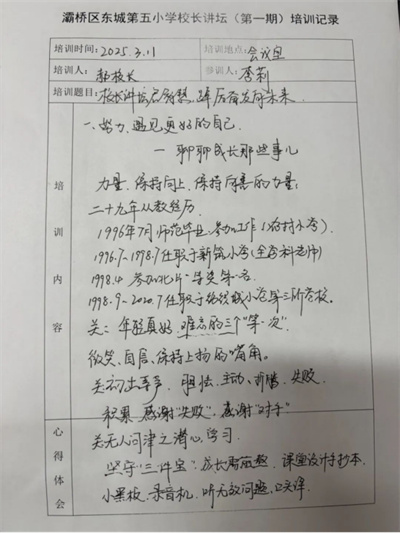 灞桥区东城第五小学校长讲坛（第一期）培训记录
培训时间：2025.3.11 培训地点：会议室
培训人：郝校长 参训人：李莉
培训题目：校长讲坛启智慧，踔厉奋发向未来.
培训内容
一、努力，遇见更好的自己
一 聊聊成长那些事儿
力量、保持向上、保持向善的力量；
二十九年从教经历.
1996年7月师范毕业，参加工作（农村小学）
1996.7-1998.7任职于新筑小学（全学科老师）
1998.4 参加 片 赛 第一名
1998.9-2020.7任职于 小学等三所学校.
关： 年轻真好，难忘的三个"第一次"
微笑、自信、保持上扬的嘴角.
主动、折腾、失败
积累 感谢"失败"，感谢"对手"
心得体会
关无人问津之潜心学习
坚守"三件宝"：成长 ，课堂设计手抄本.
小黑板、录音机，听无数问题，